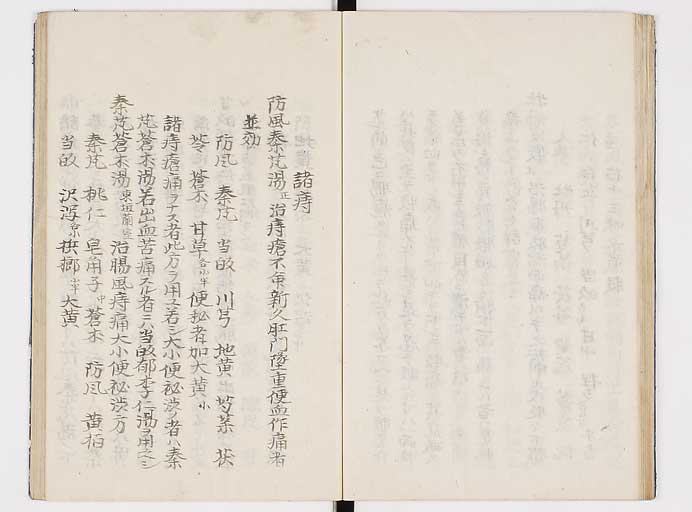 諸痔
防風秦艽湯 正 治痔瘡不問新久肛門墜重便血作痛者
並効
防風 秦艽 当皈 川芎 地黄 芍薬 茯
苓 蒼朮 甘草 各小半 便秘者加大黄 小
諸痔瘡痛ヲナス者此方ヲ用ユ若シ大小便秘渋ノ者ハ秦
艽蒼朮湯若出血苦痛スル者ニハ当皈郁李仁湯ヲ用ユヘシ
秦艽蒼朮湯 東垣蘭室 治腸風痔痛大小便秘渋方
秦艽 桃仁 皂角子 中 蒼朮 防風 黄柏
当皈 沢瀉 梹榔 小半 大黄